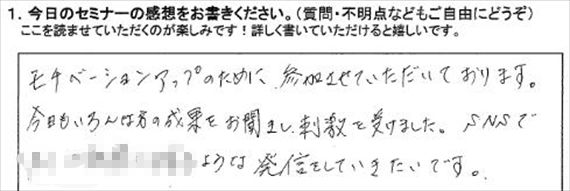 1. 今日のセミナーの感想をお書きください。(質問・不明点などもご自由にどうぞ)
ここを読ませていただくのが楽しみです！詳しく書いていただけると嬉しいです。
モチベーションアップのために、参加させていただいております。
今日もいろんな方の成果をお聞きし、刺激を受けました。SNSで
ような発信をしていきたいです。